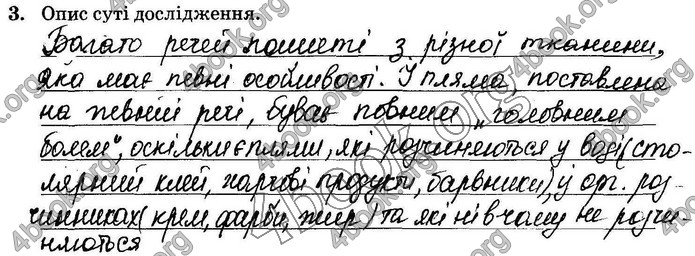 3. Опис суті дослідження.
Багато речей пошиті з різної тканини,
яка має певні особливості. І пляма поставлена
на певній речі, буває повним „головним
болем", оскільки є плями, які розчиняються у воді (сто-
лярний клей, харчові продукти, барвники) у орг. роз-
чинниках (крем, фарби, жир) та які ні в чому не розчи-
няються